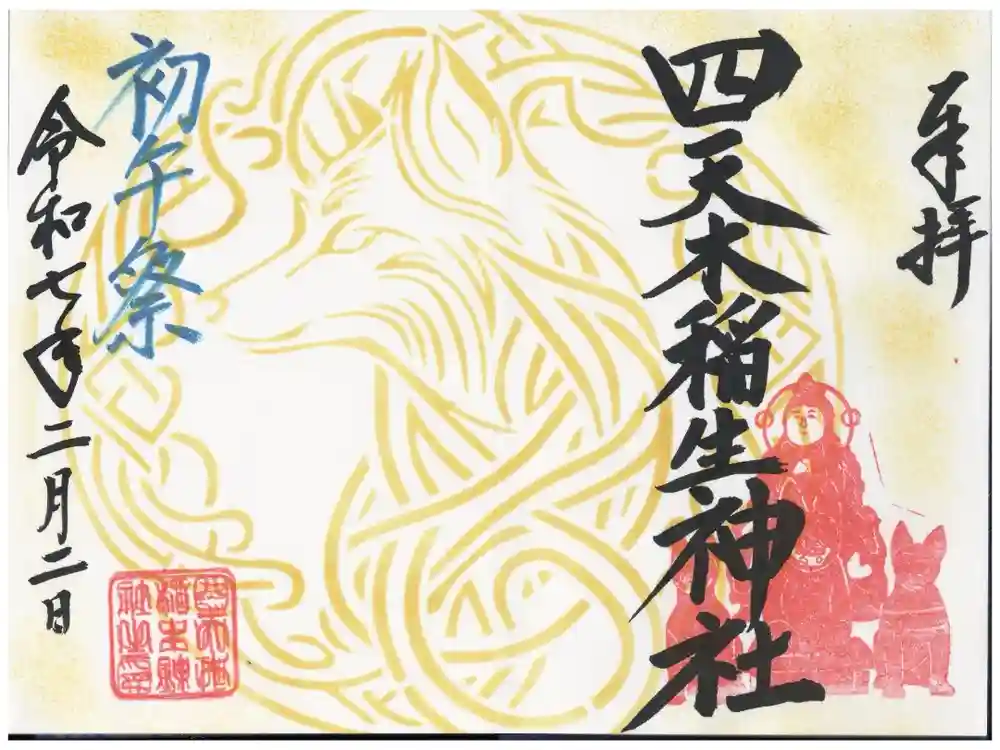 奉拝
四天木稲生神社
初午祭
令和七年二月二日
四天木
稲生神
社之印